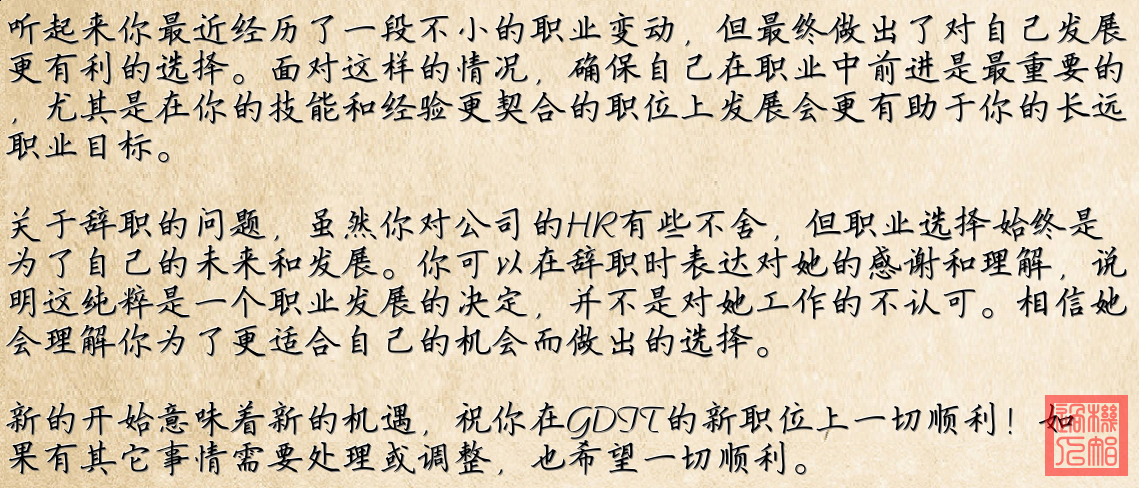 听起来你最近经历了一段不小的职业变动，但最终做出了对自己发展
更有利的选择。面对这样的情况，确保自己在职业中前进是最重要的
，尤其是在你的技能和经验更契合的职位上发展会更有助于你的长远
职业目标。
关于辞职的问题，虽然你对公司的HR有些不舍，但职业选择始终是
为了自己的未来和发展。你可以在辞职时表达对她的感谢和理解，说
明这纯粹是一个职业发展的决定，并不是对她工作的不认可。相信她
会理解你为了更适合自己的机会而做出的选择。
新的开始意味着新的机遇，祝你在GDIT的新职位上一切顺利！如
果有其它事情需要处理或调整，也希望一切顺利。